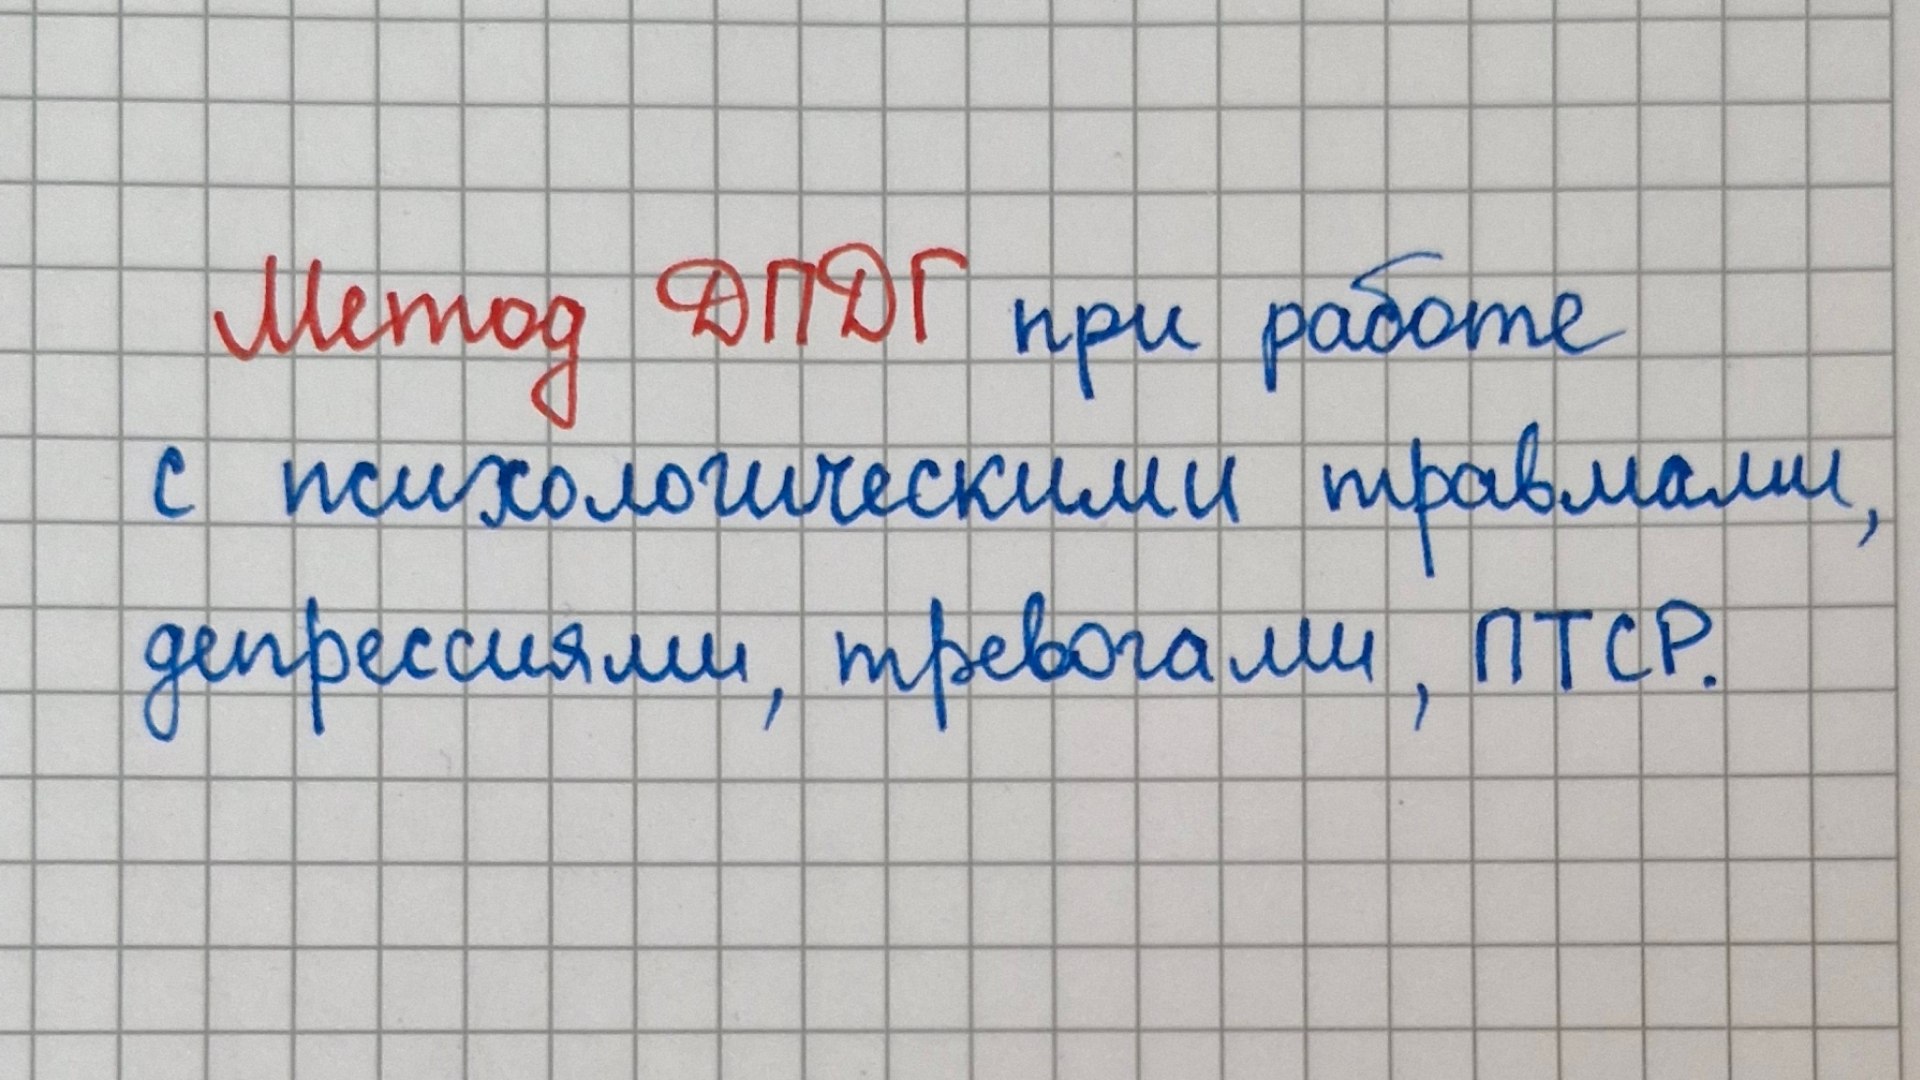 Метод ДПДГ при работе
с психологическими травмами,
депрессиями, тревогами, ПТСР.